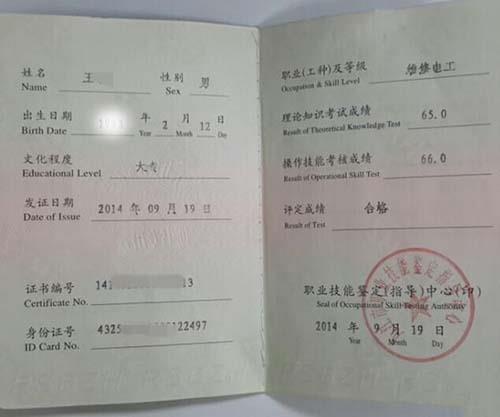 姓名 王 性别 男
Name Sex
出生日期 年 2 月 12 日
Birth Date Year Month Day
文化程度 大专
Educational Level
发证日期 2014 年 09 月 19 日
Date of Issue Year Month Day
证书编号 14 13
Certificate No.
身份证号 4325 122497
ID Card No.
职业(工种)及等级 维修电工
Occupation & Skill Level
理论知识考试成绩 65.0
Result of Theoretical Knowledge Test
操作技能考核成绩 66.0
Result of Operational Skill Test
评定成绩 合格
Result of Test
职业技能鉴定(指导)中心(印)
Seal of Occupational Skill Testing Authority
2014 年 9 月 19 日
Year Month Day